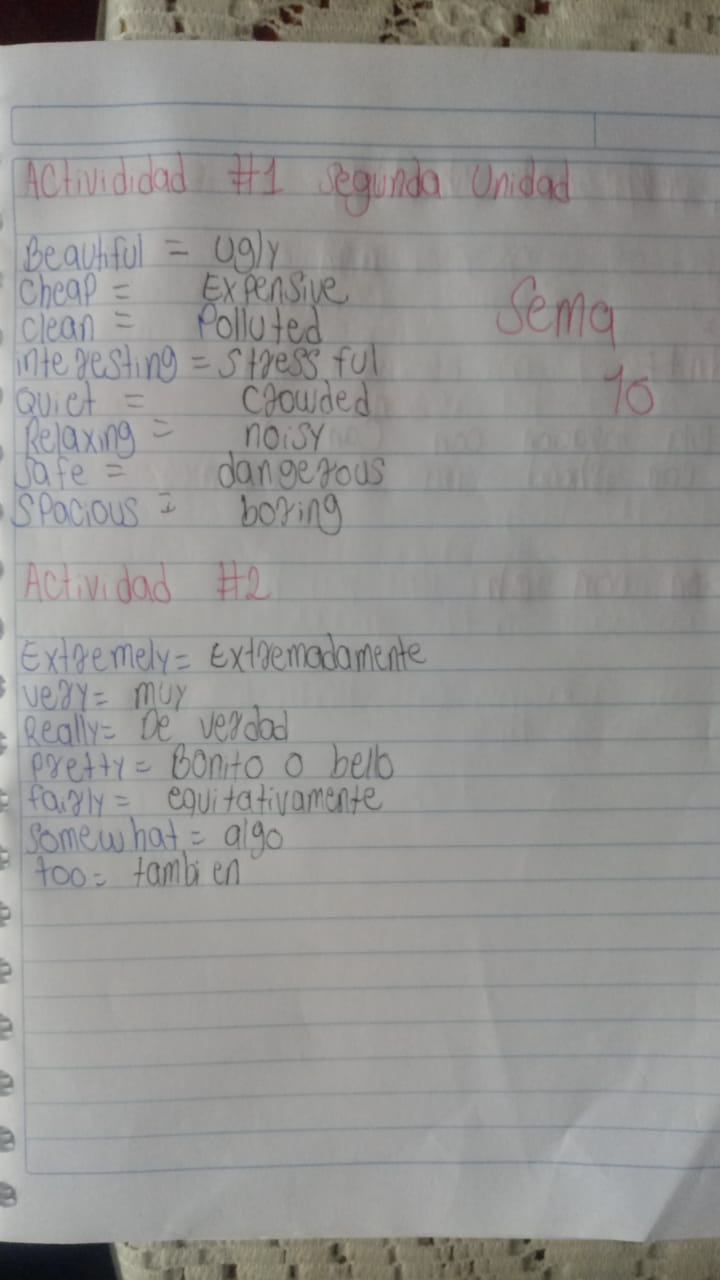 Activididad #1 Segunda Unidad
Beautiful = Ugly
Cheap = Expensive
Clean = Polluted
interesting = Stressful
Quiet = crowded
Relaxing = noisy
Safe = dangerous
Spacious = boring
Sema
10
Actividad #2
Extremely = Extremadamente
very = muy
Really = De verdad
pretty = Bonito o bello
fairly = equitativamente
Somewhat = algo
too = tambien